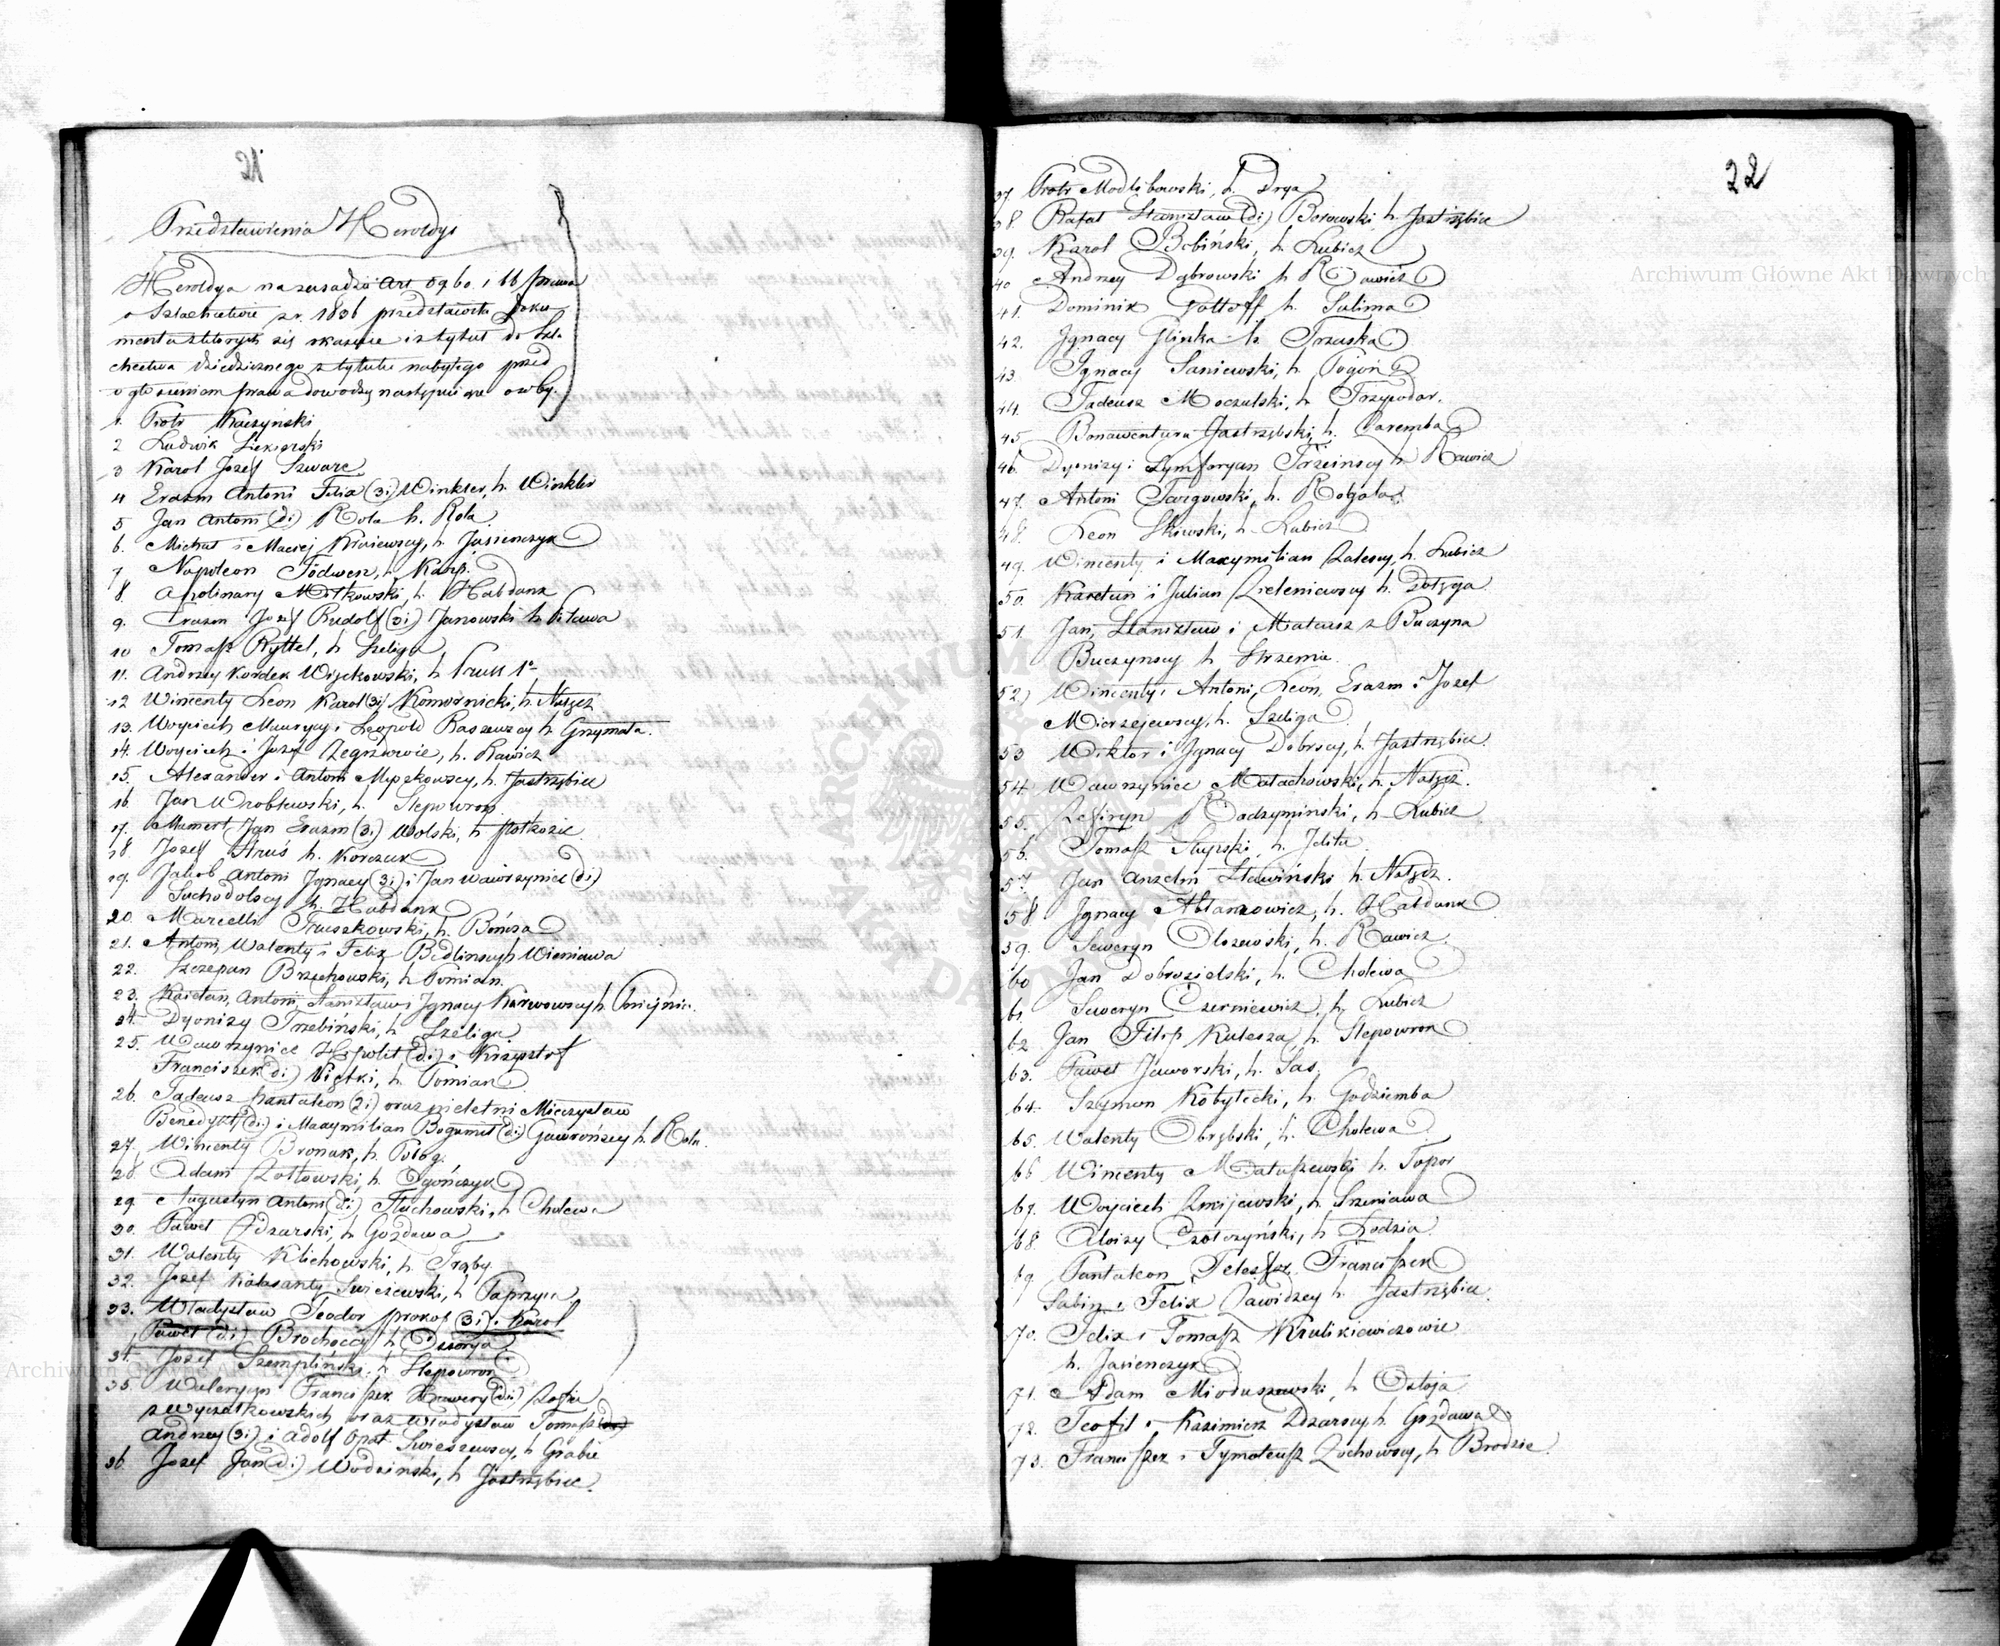 21
Przedstawienia Heroldyi
Heroldya na zasadzie Art 59 60. i 66 prawa
o Szlachectwie z r. 1836 przedstawiła doku
menta z których się okazuie iż tytuł do szla-
chectwa dziedzicznego z tytułu nabytego przed
ogłoszeniem prawa dowodzą następuiące osoby.
1. Piotr Kaczyński
2 Ludwik
3 Karol Jozef Szwarc
4 Erazm Antoni Felix (3i) Winkler, h. Winkler
5 Jan Antoni (2i) Rola h. Rola
6. Michał i Maciej Kraiewscy, h. Jasienczyk
7 Napoleon Todwen, h. Karp.
8. Apolinary Mitkowski, h. Habdank
9. Erazm Jozef Rudolf (3i) Janowski h. Pilawa
10 Tomasz Ryttel, h. Szeliga
11. Andrzey Kordek Wyckowski, h. Pruss 1o
12 Wincenty Leon Karol (3i) Komornicki, h. Nałęcz
13. Woyciech Maurycy i Leopold Raszewscy h. Grzymała.
14. Woyciech i Jozef Zegrzdowie, h. Rawicz
15. Alexander i Antoni Męczkowscy, h. Jastrzębiec
16. Jan Wroblewski, h. Slepowron
17. Mamert Jan Erazm (3i) Wolski, h. Półkozic
18. Jozef Struś h. Korczak
19. Jakob Antoni Ignacy (3i) i Jan Wawrzyniec (2i)
Suchodolscy h. Habdank
20. Marcelli Truszkowski, h. Bończa
21. Antoni, Walenty i Felix Bedlinscy h. Wieniawa
22. Szczepan Brzechowski, h. Pomian.
23. Kaietan, Antoni, Stanisław i Ignacy Karwowscy h. Pniejnia.
24. Dyonizy Trzebiński, h. Szeliga
25. Wawrzyniec Hipolit (2i) i Krzysztof
Franciszek (2i) Piętki, h. Pomian
26. Tadeusz Pantaleon (2i) oraz nieletni Mieczysław
Benedykt (2i) i Maxymilian Bogumił (2i) Gawrońscy h. Rola.
27. Wincenty Bronak, h. Pobog.
28. Adam Zołtowski, h. Ogończyk
29. Augustyn Antoni (2i) Tłuchowski, h. Cholewa
30. Paweł Zdzarski, h. Gozdawa
31. Walenty Klichowski, h. Trąby
32. Jozef Kalasanty Swieżewski, h. Paprzyca
33. Władysław Teodor Prokop (3i) i Karol
Paweł (2i) Brochoccy h. Ossorya
34. Jozef Szempliński, h. Slepowron
35. Waleryan Franciszek Xawery (2i) Zofia
z Wyczałkowskich oraz Władysław Tomasz
Andrzey (3i) i Adolf Opat Swieszewscy, h. Grabie
36. Jozef Jan (2i) Wodzinski, h. Jastrzębiec.
22
37. Piotr Modlibowski, h. Drya
38. Rafał Stanisław (2i) Borowski, h. Jastrzębiec
39. Karol Bobiński, h. Lubicz
40 Andrzey Dąbrowski h. Rawicz
41. Dominik Gottoff h. Sulima
42. Ignacy Glinka h. Trzaska
43. Ignacy Saniewski, h. Pogoń
44. Tadeusz Moczulski, h. Trzywdar.
45 Bonawentura Jastrzębski, h. Zaremba
46. Dyonizy i Symforyan Trzcinscy h. Rawicz
47. Antoni Targowski, h. Rogala
48. Leon Skiwski, h. Lubicz
49. Wincenty i Maxymilian Zalescy, h. Lubicz
50. Kaietan i Julian Zieleniewscy h. Dołęga
51. Jan, Stanisław i Mateusz z Buczyna
Buczynscy h. Strzemie.
52) Wincenty, Antoni, Leon, Erazm i Jozef
Mierzejewscy, h. Szeliga
53 Wiktor i Ignacy Dobrscy, h. Jastrzębiec.
54. Wawrzyniec Małachowski, h. Nałęcz.
55. Zefiryn Radzymiński, h. Lubicz
56. Tomasz Słupski, h. Jelita
57 Jan Anzelm Sławiński h. Nałęcz.
58 Ignacy Abłamowicz, h. Habdank
59. Seweryn Olszewski, h. Rawicz.
60 Jan Dobrosielski, h. Cholewa
61 Seweryn Czerniewicz, h. Lubicz
62 Jan Filip Kulesza, h. Slepowron
63. Paweł Jaworski, h. Sas.
64. Szymon Kobyłecki, h. Godziemba
65. Walenty Obrębski, h. Cholewa
66 Wincenty Matuszewski h. Topor
67. Woyciech Zmijewski, h. Szreniawa
68. Aloizy Czołczyński, h. Łodzia
69 Pantaleon Telesfor Franciszek
Sabin i Felix Zawidzcy h. Jastrzębiec.
70. Felix i Tomasz Krulikiewiczowie
h. Jasienczyk
71. Adam Mioduszewski, h. Ostoja
72. Teofil i Kazimierz Zdzarscy h. Gozdawa
73. Franciszek i Tymoteusz Zochowscy, h. Brodzic
Archiwum Główne Akt Dawnych